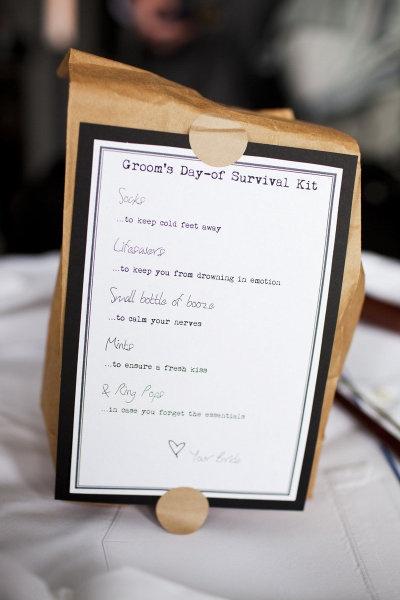 Groom's Day-of Survival Kit
Socks
...to keep cold feet away
Lifesavers
...to keep you from drowning in emotion
Small bottle of booze
...to calm your nerves
Mints
...to ensure a fresh kiss
& Ring Pops
...in case you forget the essentials
♡ Your Bride